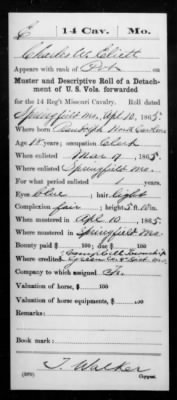 E 14 Cav. Mo.
Charles W. Eliott
Appears with rank of Pvt. on
Muster and Descriptive Roll of a Detachment of U. S. Vols. forwarded
for the 14 Reg't Missouri Cavalry. Roll dated
Springfield Mo., Apl 10, 1865.
Where born Randolph North Carolina
Age 18 years; occupation Clerk
When enlisted Mar 9, 1865.
Where enlisted Springfield Mo.
For what period enlisted 1 years.
Eyes blue; hair light
Complexion fair; height 5 ft. in.
When mustered in Apl 10, 1865.
Where mustered in Springfield Mo.
Bounty paid $ 100; due $ 100
Where credited Campbell Township
Green Co.
Company to which assigned
Valuation of horse, $ 100
Valuation of horse equipments, $ 100
Remarks:
Book mark:
T. Walker
Copyist.